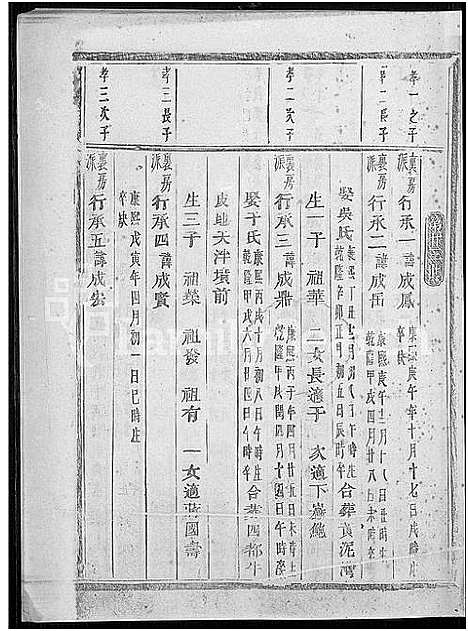 孝一之子
裏房派
行承一諱成鳳
康熙庚午年十月十七日戌時生
卒缺
孝二長子
裏房派
行承二諱成岳
康熙庚午十二月廿八日午時生
乾隆甲戌四月廿八日未時卒
娶吳氏
乾隆辛卯正月初五日辰時卒
合葬黃泥灣
生一子 祖華 二女長適于 次適下 鮑
孝二次子
裏房派
行承三諱成鼎
康熙丙子年四月廿五日未時生
乾隆甲戌閏四月十四日午時卒
娶于氏
康熙丙戌十月初八日午時生
乾隆甲戌六月廿四日午時卒
合葬四都牛
皮地大洋墳前
生三子 祖榮 祖發 祖有 一女適 國壽
孝三長子
裏房派
行承四諱成賢
康熙戊寅年四月初一日巳時生
卒缺
孝三次子
裏房派
行承五諱成